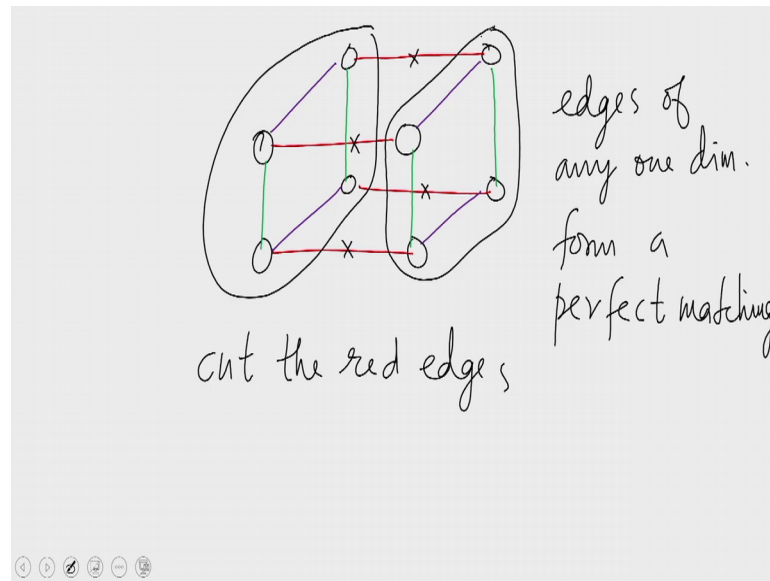 edges of
any one dim.
form a
perfect matching
cut the red edges